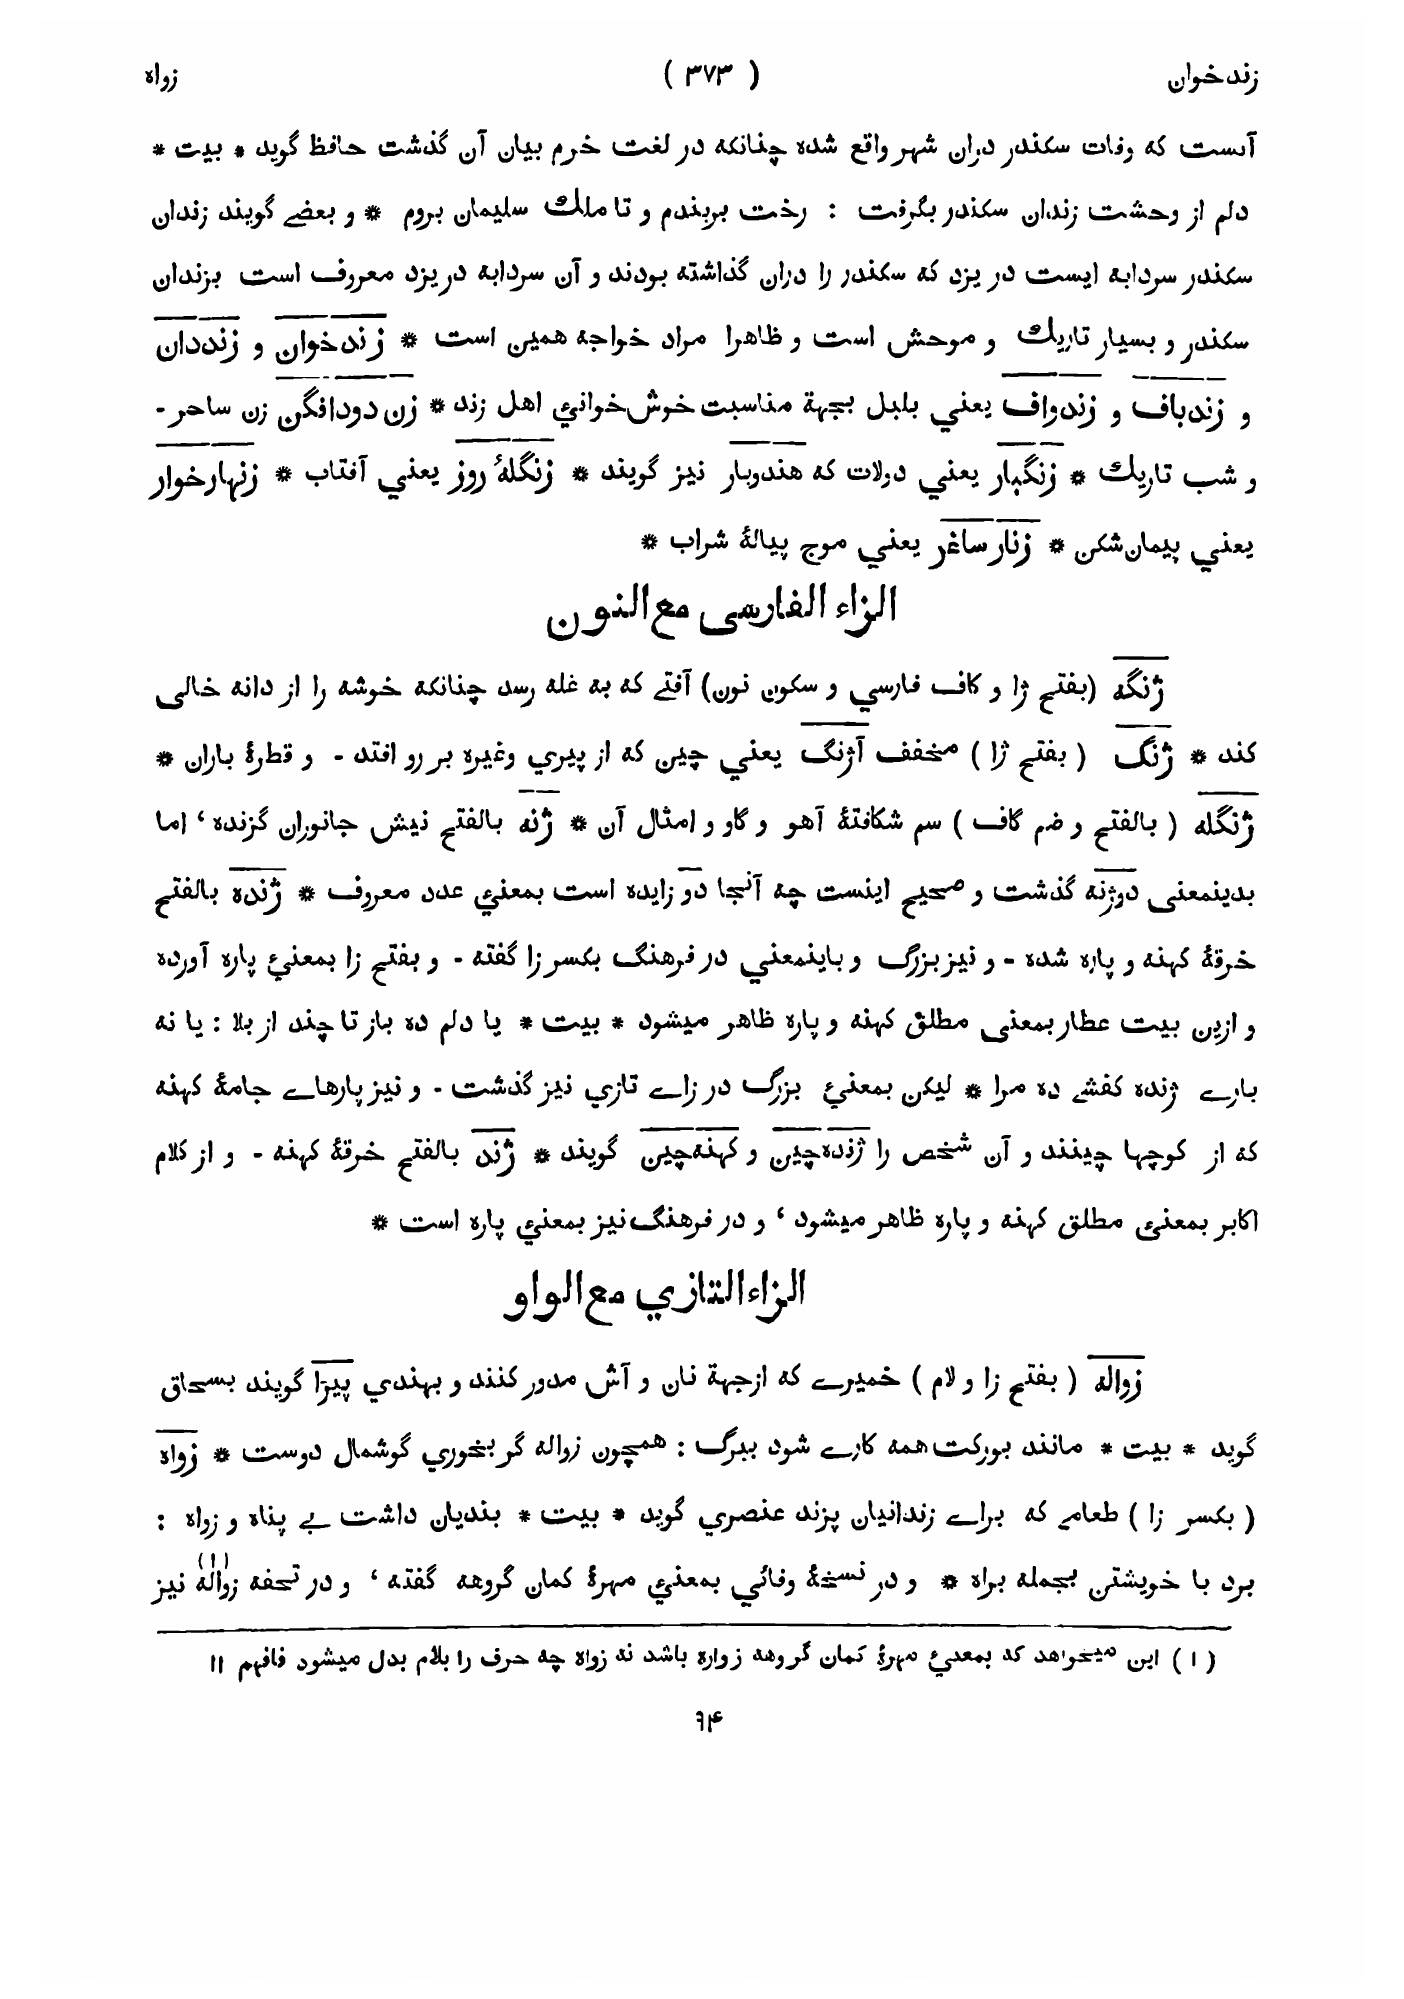 زندخوان ( ۳۷۳ ) زواه
آنست که وفات سکندر دران شهر واقع شده چنانکه در لغت خرم بیان آن گذشت حافظ گوید * بیت *
دلم از وحشت زندان سکندر بگرفت : رخت بربندم و تا ملك سلیمان بروم * و بعضے گویند زندان
سکندر سردابه ایست در یزد که سکندر را دران گذاشته بودند و آن سردابه در یزد معروف است بزندان
سکندر و بسیار تاریك و موحش است و ظاهرا مراد خواجه همین است * زندخوان و زنددان
و زندباف و زندواف یعني بلبل بجهة مناسبت خوش‌خواني اهل زند * زن دودافگن زن ساحر -
و شب تاریك * زنگبار یعني دولات که هندوبار نیز گویند * زنگلهٔ روز یعني آفتاب * زنهارخوار
یعني پیمان‌شکن * زنار ساغر یعني موج پیالهٔ شراب *
الزاء الفارسی مع النون
ژنگه (بفتح ژا و کاف فارسي و سکون نون) آفتے که به غله رسد چنانکه خوشه را از دانه خالی
کند * ژنگ ( بفتح ژا ) مخفف آژنگ یعني چین که از پیري وغیره بر رو افتد - و قطرهٔ باران *
ژنگله ( بالفتح و ضم گاف ) سم شکافتهٔ آهو و گاو و امثال آن * ژنه بالفتح نیش جانوران گزنده ، اما
بدینمعنی دوژنه گذشت و صحیح اینست چه آنجا دو زایده است بمعني عدد معروف * ژنده بالفتح
خرقهٔ کهنه و پاره شده - و نیز بزرگ و باینمعني در فرهنگ بکسر زا گفته - و بفتح زا بمعني پاره آورده
و ازین بیت عطار بمعنی مطلق کهنه و پاره ظاهر میشود * بیت * یا دلم ده باز تا چند از بلا : یا نه
بارے ژنده کفشے ده مرا * لیکن بمعني بزرگ در زاے تازي نیز گذشت - و نیز پارهاے جامهٔ کهنه
که از کوچها چینند و آن شخص را ژنده‌چین و کهنه‌چین گویند * ژند بالفتح خرقهٔ کهنه - و از کلام
اکابر بمعنی مطلق کهنه و پاره ظاهر میشود ، و در فرهنگ نیز بمعني پاره است *
الزاء التازي مع الواو
زواله ( بفتح زا و لام ) خمیرے که ازجهة نان و آش مدور کنند و بهندي پیزا گویند بسحاق
گوید * بیت * مانند بورکت همه کارے شود ببرگ : همچون زواله گر بخوري گوشمال دوست * زواه
( بکسر زا ) طعامے که براے زندانیان پزند عنصري گوید * بیت * بندیان داشت بے پناه و زواه :
برد با خویشتن بجمله براه * و در نسخهٔ وفائي بمعني مهرهٔ کمان گروهه گفته ، و در تحفه زواله(۱) نیز
( ۱ ) این میخواهد که بمعني مهرهٔ کمان گروهه زواره باشد نه زواه چه حرف را بلام بدل میشود فافهم ۱۱
۹۴